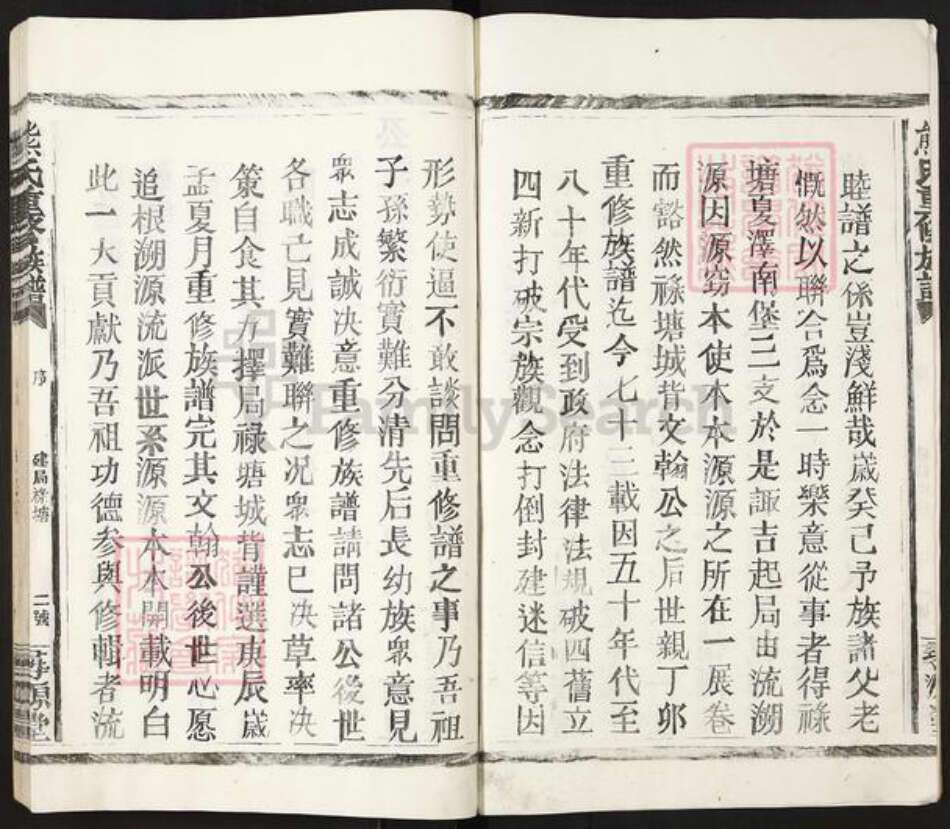 睦譜之係豈淺鮮哉歲癸己予族諸父老
慨然以聯合爲念一時樂意從事者得祿
塘夏澤南堡三支於是諏吉起局由流溯
源因源窮本使本本源源之所在一展卷
而豁然祿塘城背文翰公之后世親丁邜
重修族譜迄今七十二載因五十年代至
八十年代受到政府法律法規破四舊立
四新打破宗族觀念打倒封建迷信等因
形勢使逼不敢談問重修譜之事乃吾祖
子孫繁衍實難分清先后長幼族衆意見
衆志成誠决意重修族譜請問諸公後世
各職亡見實難聯之况衆志巳决草率决
策自食其力擇局禄塘城背謹選庚辰歲
孟夏月重修族譜完其文翰公後世心愿
追根溯源流派世系源源本本開載明白
此一大貢獻乃吾祖功德参與修輯者流
熊氏重修族譜
序
建局祿塘
二號
孝源堂
FamilySearch